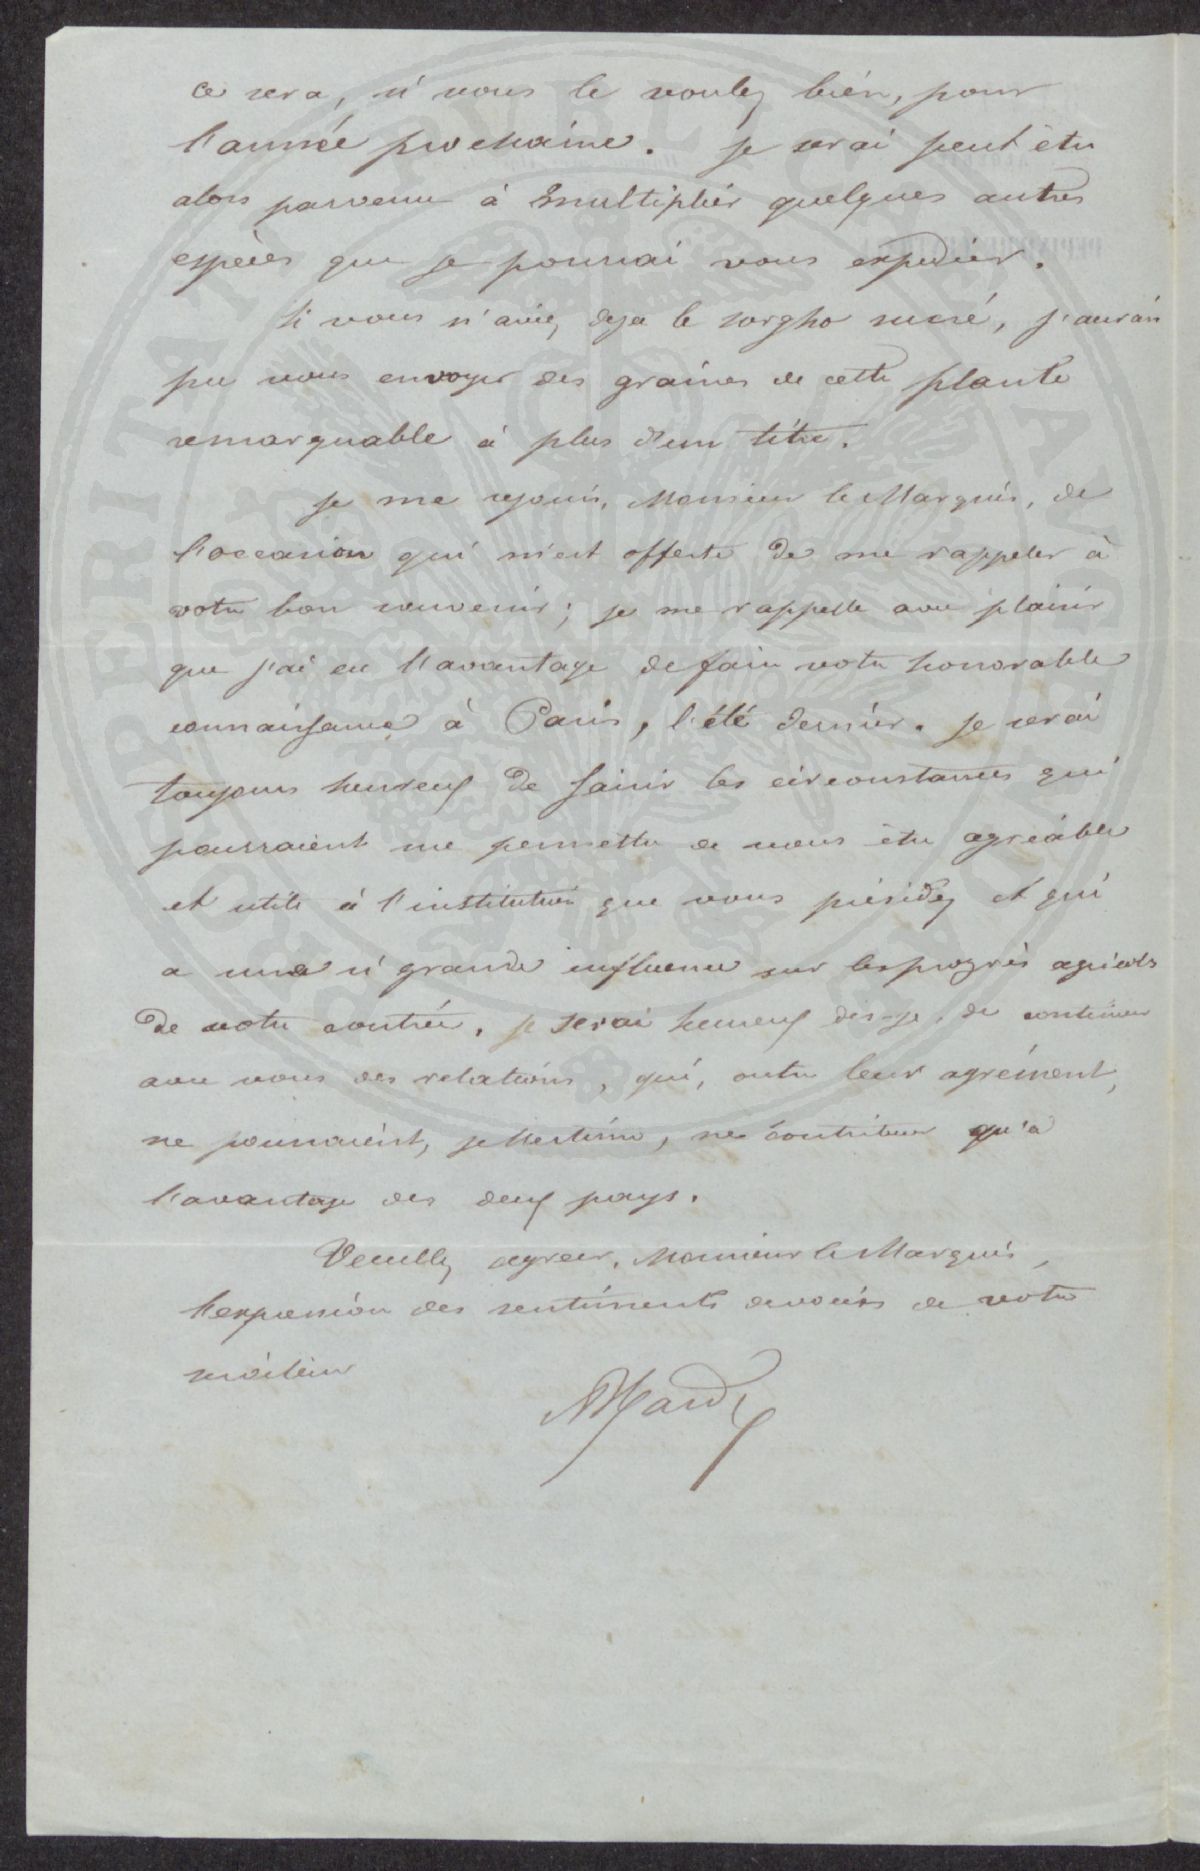 ce sera, si vous le voulez bien, pour
l'année prochaine. Je serai peut être
alors parvenu à multiplier quelques autres
espèces que je pourrai vous expedier.
Si vous n'aviez deja le sorgho sucré, j'aurais
pu vous envoyer des graines de cette plante
remarquable à plus d'un titre.
Je me rejouis, Monsieur le Marquis, de
l'occasion qui m'est offerte de me rappeler à
votre bon souvenir; je me rappelle avec plaisir
que j'ai eu l'avantage de faire votre honorable
connaissance à Paris, l'été dernier. Je serai
toujours heureux de saisir les circonstances qui
pourraient me permettre de vous être agréable
et utile à l'institution que vous présidez et qui
a une si grande influence sur les progrès agricoles
de votre contrée. Je serai heureux dis-je, de continuer
avec vous des relations, qui, outre leur agrément,
ne pourraient, je l'estime, ne contribuer qu'à
l'avantage des deux pays.
Veuillez agreer, Monsieur le Marquis,
l'expression des sentiments devoués de votre
serviteur
AHardy
PROSPERITATI PVBLICAE AVGENDAE